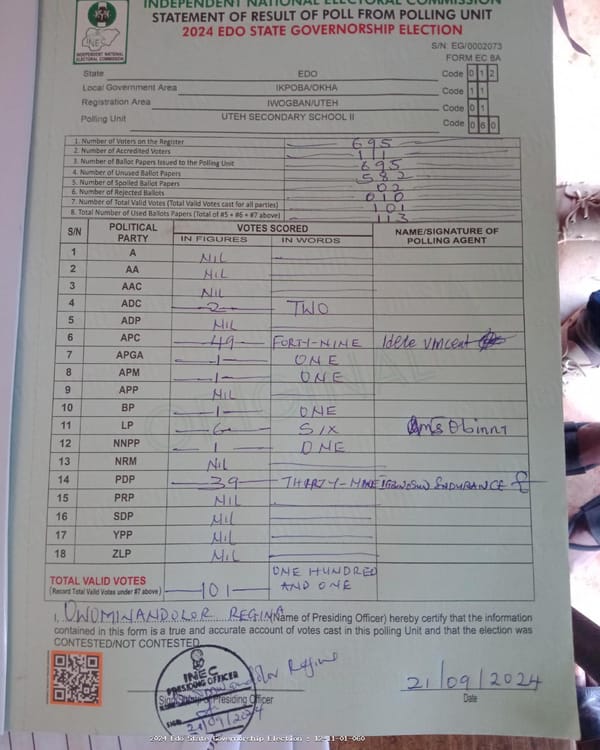 INDEPENDENT NATIONAL ELECTORAL COMMISSION
STATEMENT OF RESULT OF POLL FROM POLLING UNIT
2024 EDO STATE GOVERNORSHIP ELECTION
INEC
INDEPENDENT NATIONAL ELECTORAL COMMISSION
S/N: EG/0002073
FORM EC 8A
State EDO Code 0 1 2
Local Government Area IKPOBA/OKHA Code 1 1
Registration Area IWOGBAN/UTEH Code 0 1
Polling Unit UTEH SECONDARY SCHOOL II Code 0 6 0
1. Number of Voters on the Register 695
2. Number of Accredited Voters 111
3. Number of Ballot Papers Issued to the Polling Unit 695
4. Number of Unused Ballot Papers 582
5. Number of Spoiled Ballot Papers 02
6. Number of Rejected Ballots 010
7. Number of Total Valid Votes (Total Valid Votes cast for all parties) 101
8. Total Number of Used Ballots Papers (Total of #5 + #6 + #7 above) 113
S/N POLITICAL PARTY VOTES SCORED NAME/SIGNATURE OF POLLING AGENT
IN FIGURES IN WORDS
1 A NIL
2 AA NIL
3 AAC NIL
4 ADC 2 TWO
5 ADP NIL
6 APC 49 FORTY-NINE Idele Vincent
7 APGA 1 ONE
8 APM 1 ONE
9 APP NIL
10 BP 1 ONE
11 LP 6 SIX Obinna
12 NNPP 1 ONE
13 NRM NIL
14 PDP 39 THIRTY-NINE ENDURANCE
15 PRP NIL
16 SDP NIL
17 YPP NIL
18 ZLP NIL
TOTAL VALID VOTES 101 ONE HUNDRED AND ONE
(Record Total Valid Votes under #7 above)
ORIGINAL
I, OWOMINANDOLOR REGINA (Name of Presiding Officer) hereby certify that the information
contained in this form is a true and accurate account of votes cast in this polling Unit and that the election was
CONTESTED/NOT CONTESTED.
INEC
PRESIDING OFFICER
SIGN
21/09/2024
Regina
Signature of Presiding Officer
21/09/2024
Date
2024 Edo State Governorship Election : 12-11-01-060